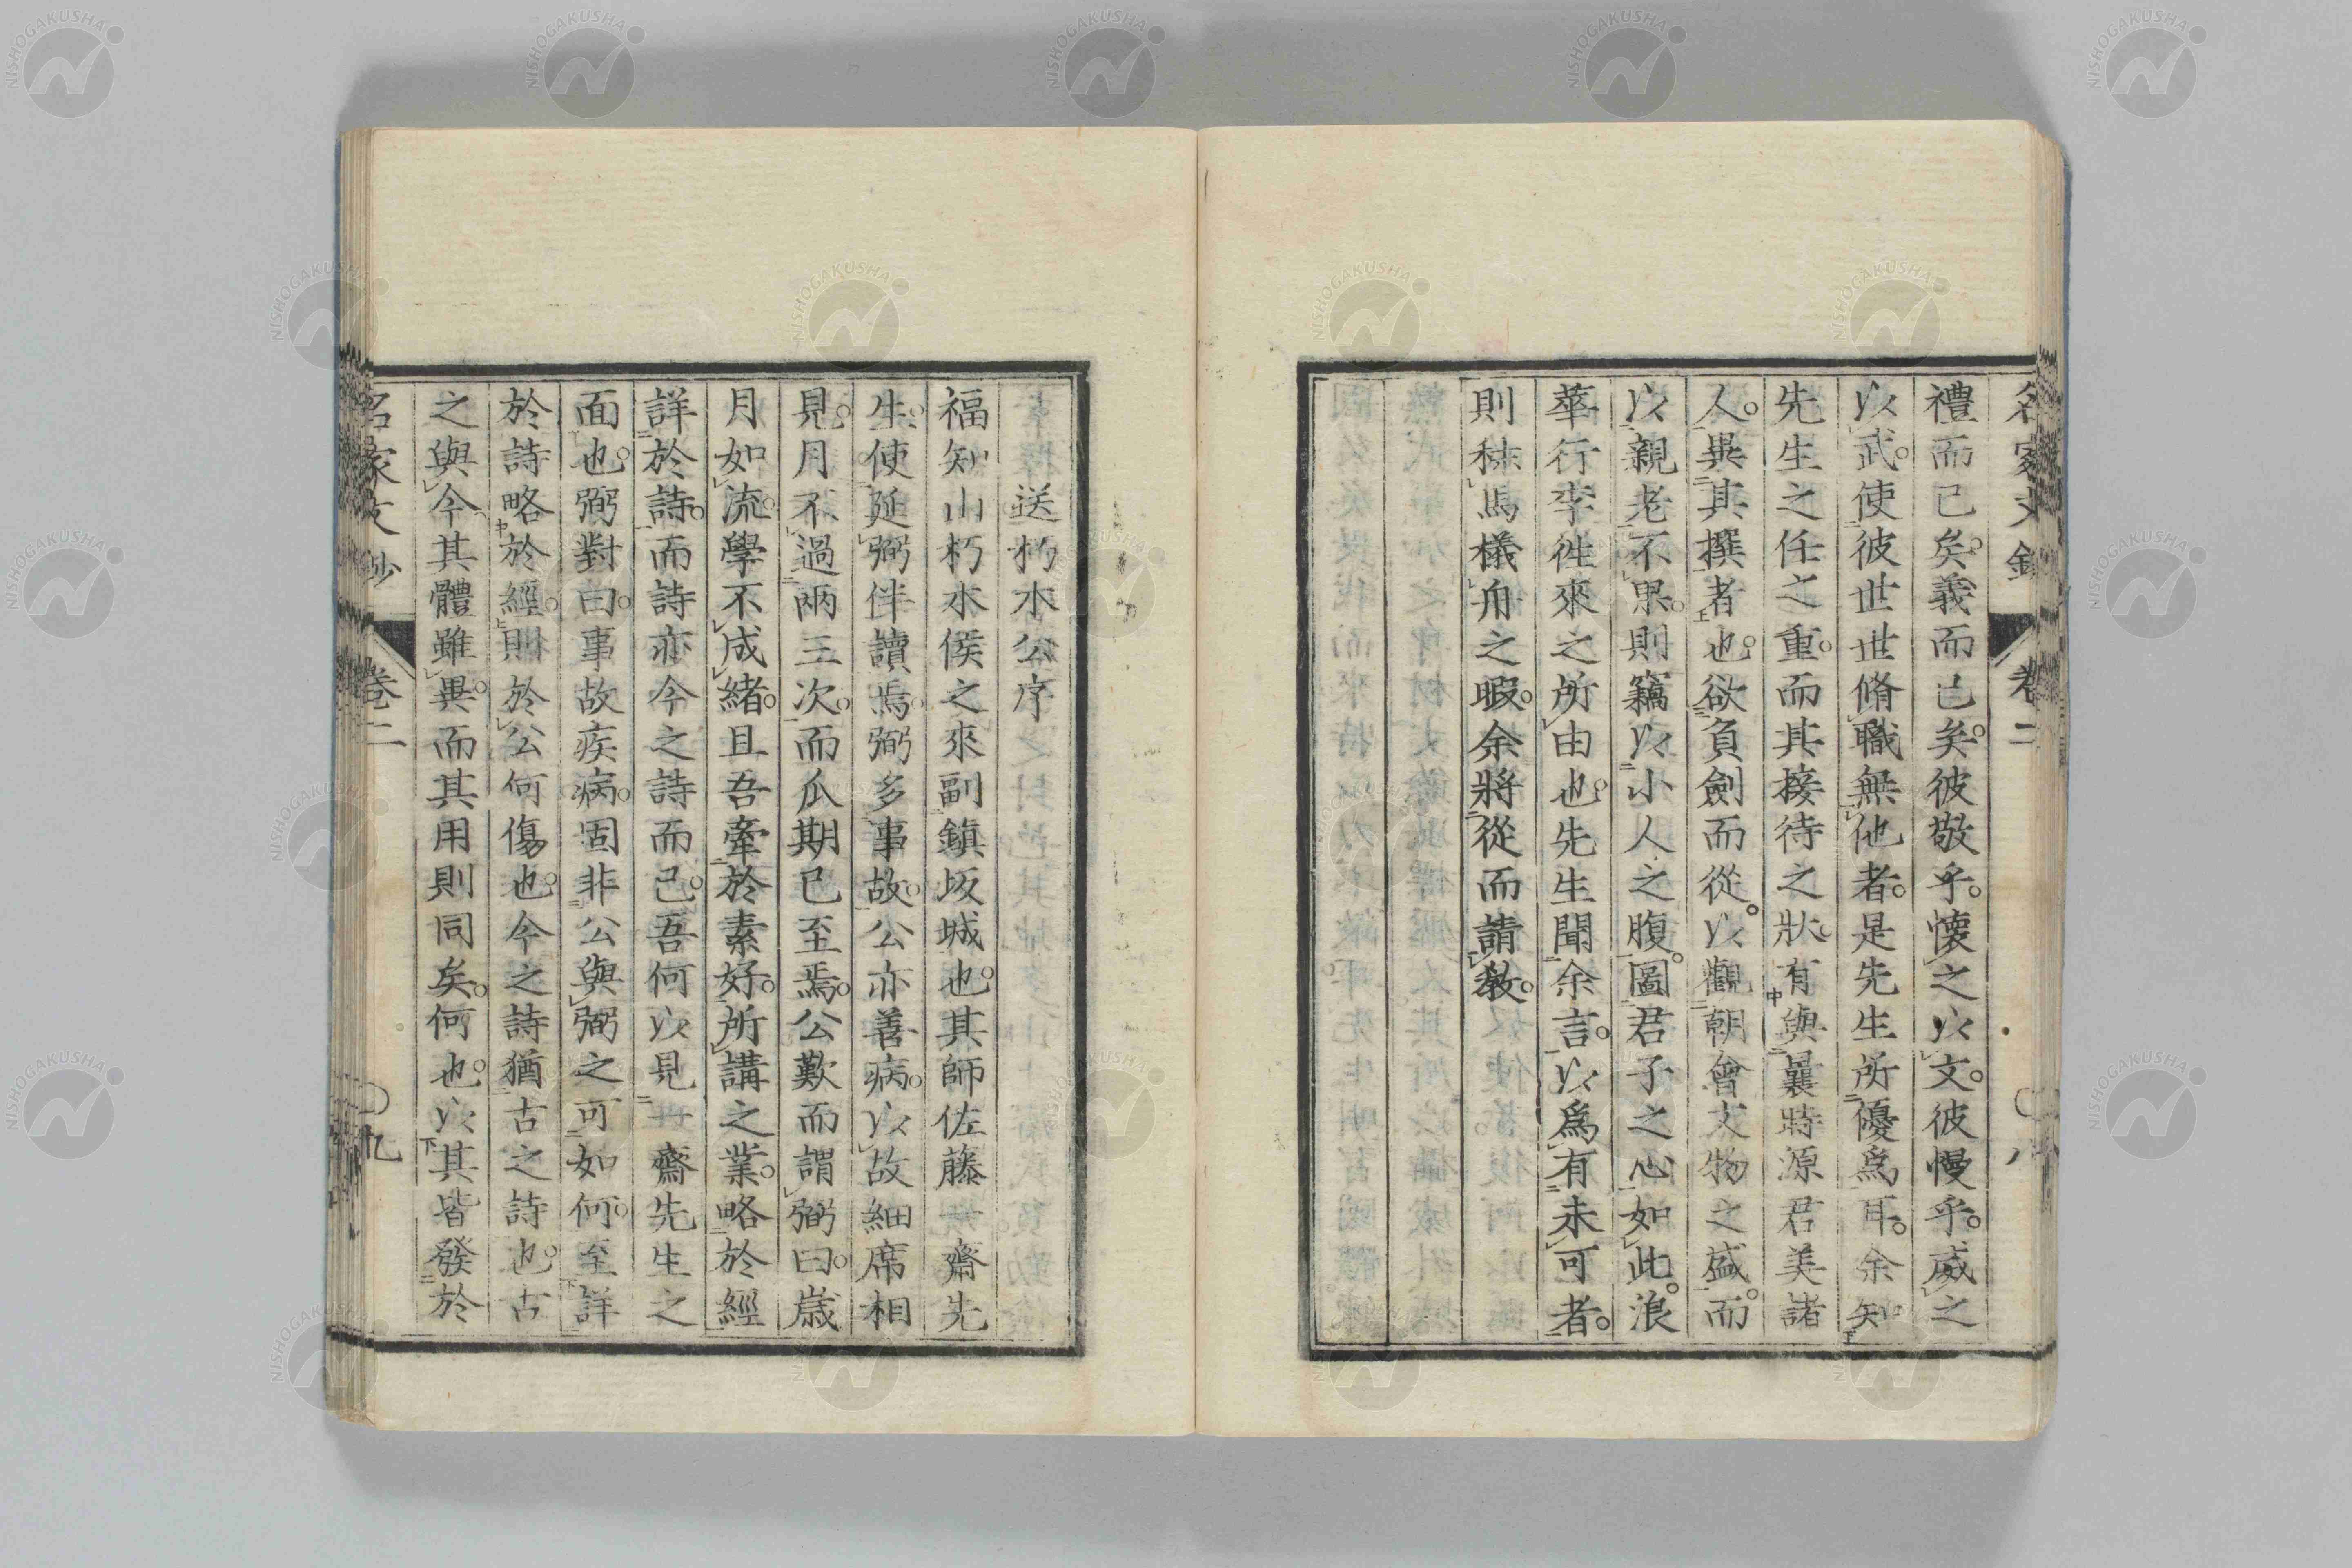 禮而已矣。義而已矣。彼敬乎。懷之以文。彼慢乎。威之
以武。使彼世世脩職無他者。是先生所優爲耳。余知
先生之任之重。而其接待之狀。有與曩時源君美諸
人。異其撰者也。欲負劍而從。以觀朝會文物之盛。而
以親老不果。則竊以小人之腹。圖君子之心如此。浪
華行李徃來之所由也。先生聞余言。以爲有未可者。
則秣馬檥舟之暇。余將從而請教。
送朽木公序
福知山朽木侯之來副鎮坂城也。其師佐藤一齋先
生。使延弼伴讀焉。弼多事故。公亦善病。以故細席相
見。月不過兩三次。而瓜期已至焉。公歎而謂弼曰。歳
月如流。學不成緒。且吾牽於素好。所講之業。略於經
詳於詩。而詩亦今之詩而已。吾何以見一齋先生之
面也。弼對曰。事故疾病。固非公與弼之可如何。至詳
於詩略於經。則於公何傷也。今之詩猶古之詩也。古
之與今其體雖異。而其用則同矣。何也。以其皆發於
名家文抄
卷二
〇九
NISHOGAKUSHA